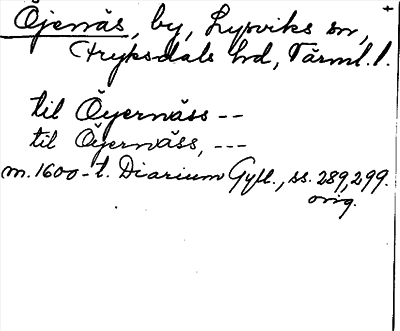 Öjenäs, by, Lysviks sn,
Fryksdals hd, Värml. l.
til Öyernäss --
til Öyernäss, ---
m. 1600-t. Diarium Gyll., ss. 289, 299.
orig.